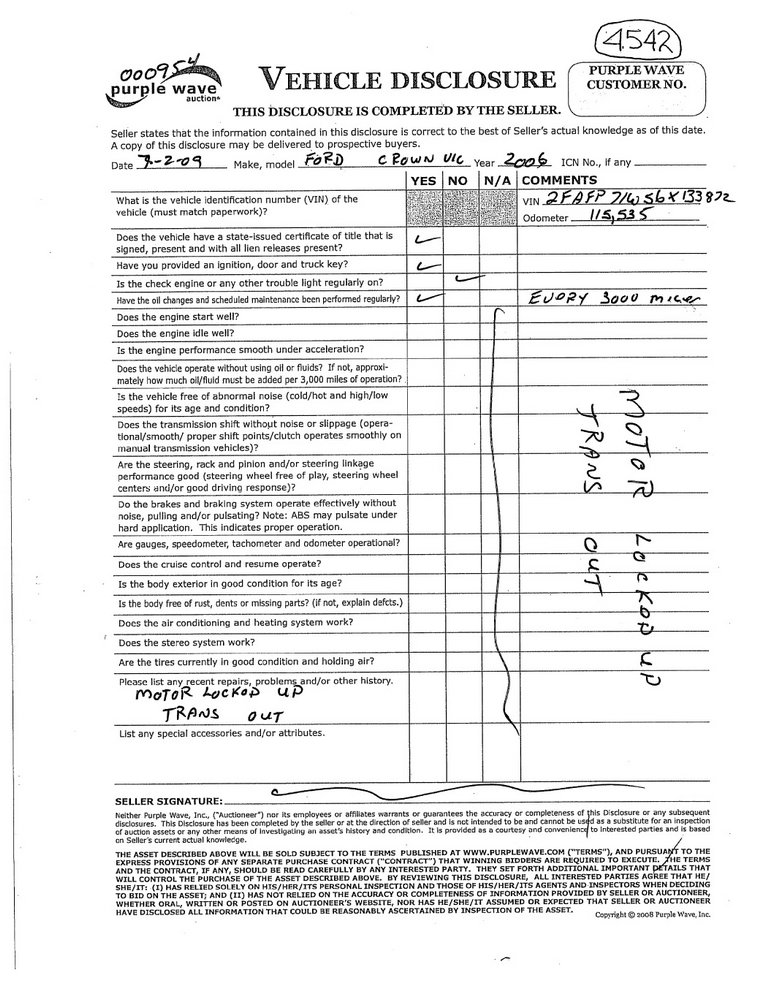 4542
000954
purple wave
auction®
VEHICLE DISCLOSURE
PURPLE WAVE
CUSTOMER NO.
THIS DISCLOSURE IS COMPLETED BY THE SELLER.
Seller states that the information contained in this disclosure is correct to the best of Seller's actual knowledge as of this date.
A copy of this disclosure may be delivered to prospective buyers.
Date 7-2-09 Make, model FORD CROWN VIC Year 2006 ICN No., if any
YES NO N/A COMMENTS
What is the vehicle identification number (VIN) of the
vehicle (must match paperwork)?
VIN 2FAFP 71W56X133872
Odometer 115,535
Does the vehicle have a state-issued certificate of title that is
signed, present and with all lien releases present?
Have you provided an ignition, door and truck key?
Is the check engine or any other trouble light regularly on?
Have the oil changes and scheduled maintenance been performed regularly? EVORY 3000 miles
Does the engine start well?
Does the engine idle well?
Is the engine performance smooth under acceleration?
Does the vehicle operate without using oil or fluids? If not, approxi-
mately how much oil/fluid must be added per 3,000 miles of operation?
Is the vehicle free of abnormal noise (cold/hot and high/low
speeds) for its age and condition?
Does the transmission shift without noise or slippage (opera-
tional/smooth/ proper shift points/clutch operates smoothly on
manual transmission vehicles)?
Are the steering, rack and pinion and/or steering linkage
performance good (steering wheel free of play, steering wheel
centers and/or good driving response)?
Do the brakes and braking system operate effectively without
noise, pulling and/or pulsating? Note: ABS may pulsate under
hard application. This indicates proper operation.
Are gauges, speedometer, tachometer and odometer operational?
Does the cruise control and resume operate?
Is the body exterior in good condition for its age?
Is the body free of rust, dents or missing parts? (if not, explain defcts.)
Does the air conditioning and heating system work?
Does the stereo system work?
Are the tires currently in good condition and holding air?
MOTOR LOCKOD UP
TRANS OUT
Please list any recent repairs, problems and/or other history.
MOTOR LOCKOD UP
TRANS OUT
List any special accessories and/or attributes.
SELLER SIGNATURE:
Neither Purple Wave, Inc., ("Auctioneer") nor its employees or affiliates warrants or guarantees the accuracy or completeness of this Disclosure or any subsequent
disclosures. This Disclosure has been completed by the seller or at the direction of seller and is not intended to be and cannot be used as a substitute for an inspection
of auction assets or any other means of investigating an asset's history and condition. It is provided as a courtesy and convenience to interested parties and is based
on Seller's current actual knowledge.
THE ASSET DESCRIBED ABOVE WILL BE SOLD SUBJECT TO THE TERMS PUBLISHED AT WWW.PURPLEWAVE.COM ("TERMS"), AND PURSUANT TO THE
EXPRESS PROVISIONS OF ANY SEPARATE PURCHASE CONTRACT ("CONTRACT") THAT WINNING BIDDERS ARE REQUIRED TO EXECUTE. THE TERMS
AND THE CONTRACT, IF ANY, SHOULD BE READ CAREFULLY BY ANY INTERESTED PARTY. THEY SET FORTH ADDITIONAL IMPORTANT DETAILS THAT
WILL CONTROL THE PURCHASE OF THE ASSET DESCRIBED ABOVE. BY REVIEWING THIS DISCLOSURE, ALL INTERESTED PARTIES AGREE THAT HE/
SHE/IT: (I) HAS RELIED SOLELY ON HIS/HER/ITS PERSONAL INSPECTION AND THOSE OF HIS/HER/ITS AGENTS AND INSPECTORS WHEN DECIDING
TO BID ON THE ASSET; AND (II) HAS NOT RELIED ON THE ACCURACY OR COMPLETENESS OF INFORMATION PROVIDED BY SELLER OR AUCTIONEER,
WHETHER ORAL, WRITTEN OR POSTED ON AUCTIONEER'S WEBSITE, NOR HAS HE/SHE/IT ASSUMED OR EXPECTED THAT SELLER OR AUCTIONEER
HAVE DISCLOSED ALL INFORMATION THAT COULD BE REASONABLY ASCERTAINED BY INSPECTION OF THE ASSET.
Copyright © 2008 Purple Wave, Inc.